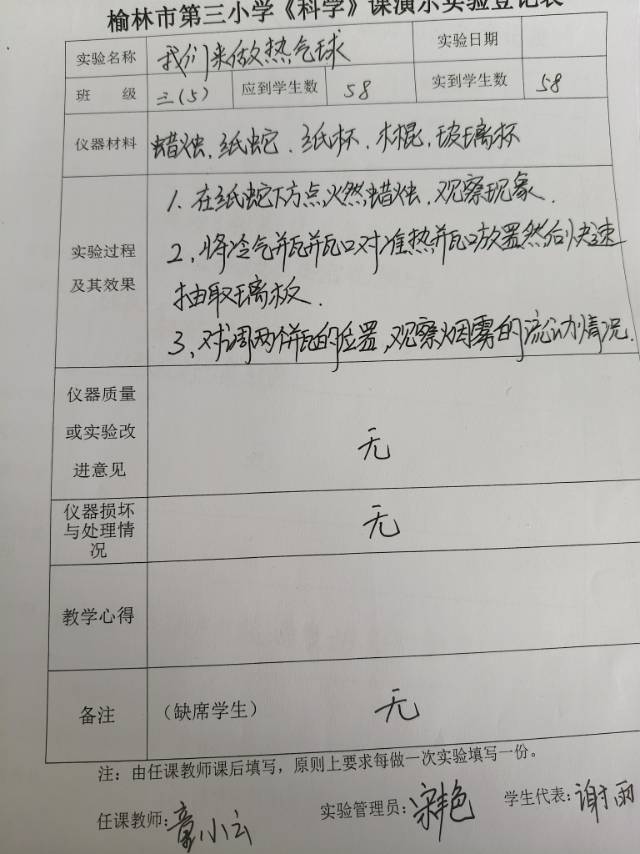 榆林市第三小学《科学》课演示实验登记表
实验名称 我们来做热气球 实验日期
班 级 三(5) 应到学生数 58 实到学生数 58
仪器材料 蜡烛、纸蛇、纸杯、木棍、玻璃杯
实验过程及其效果
1、在纸蛇下方点火燃蜡烛，观察现象．
2、将冷气瓶瓶口对准热瓶口放置然后快速
抽取璃板．
3、对调两个瓶的位置，观察烟雾的流动情况．
仪器质量
或实验改
进意见 无
仪器损坏
与处理情
况 无
教学心得
备注 （缺席学生） 无
注：由任课教师课后填写，原则上要求每做一次实验填写一份。
任课教师： 小云 实验管理员：宋艳 学生代表：谢于雨